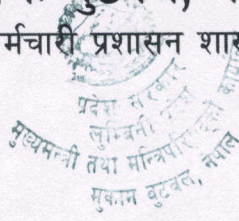 र्मचारी प्रशासन शास
प्रदेश सरकार
लुम्बिनी प्रदेश
मुख्यमन्त्री तथा मन्त्रिपरिषद्को कार्या
नेपाल
मुकाम बुटवल,